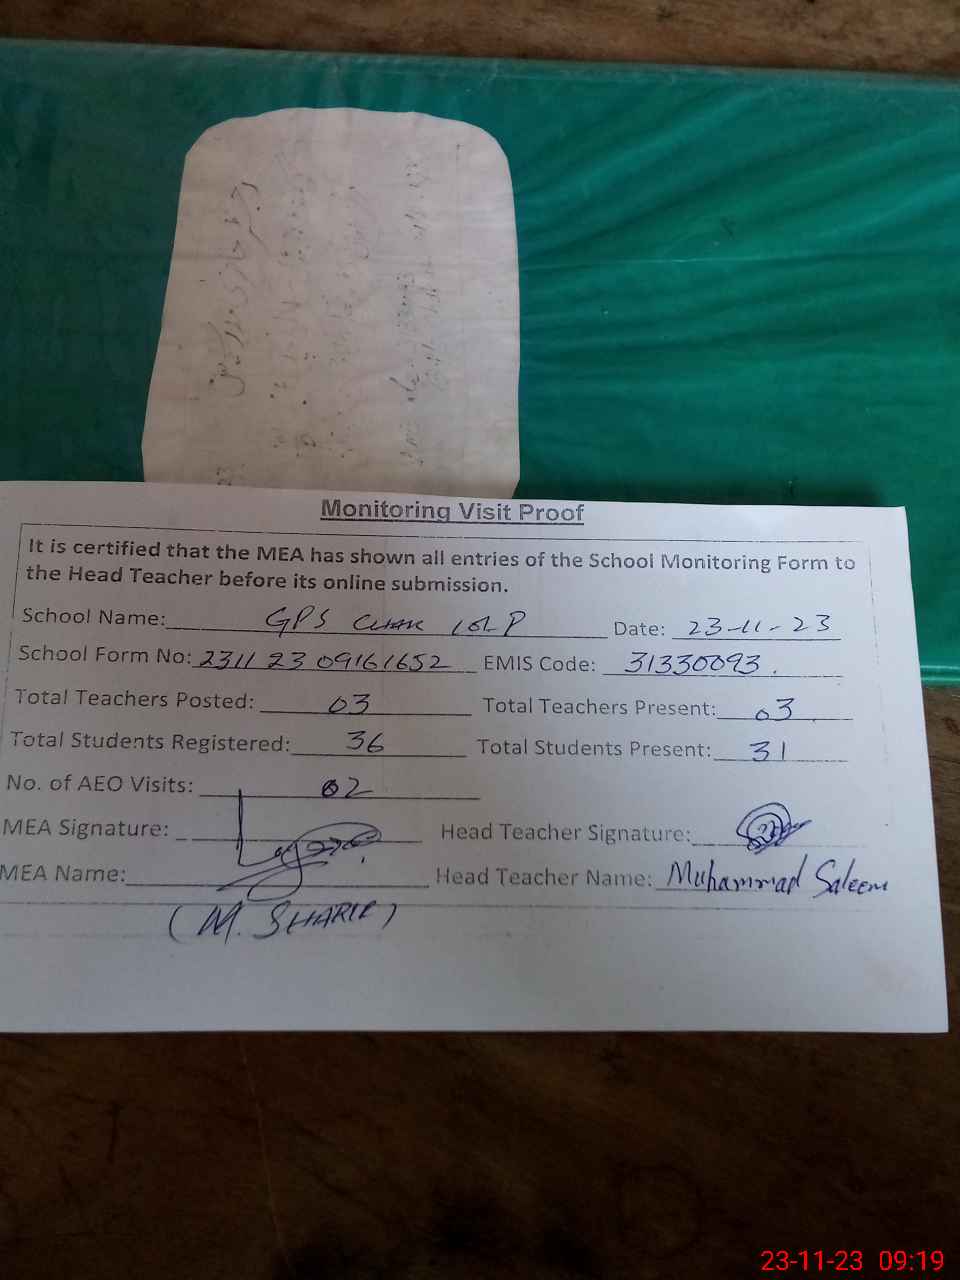 Monitoring Visit Proof
It is certified that the MEA has shown all entries of the School Monitoring Form to
the Head Teacher before its online submission.
School Name: GPS Chak 101 P Date: 23-11-23
School Form No: 2311 23 09161652 EMIS Code: 31330093.
Total Teachers Posted: 03 Total Teachers Present: 03
Total Students Registered: 36 Total Students Present: 31
No. of AEO Visits: 02
MEA Signature: Head Teacher Signature:
MEA Name: Head Teacher Name: Muhammad Saleem
(M. SHARIF)
23-11-23 09:19